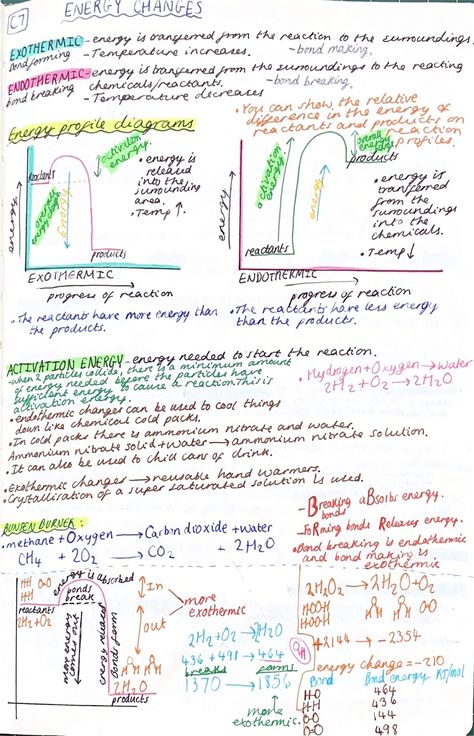 C7
ENERGY CHANGES
EXOTHERMIC - energy is transferred from the reaction to the surroundings.
Bond forming - Temperature increases. - bond making.
ENDOTHERMIC - energy is transferred from the surroundings to the reacting
bond breaking chemicals/reactants. - bond breaking.
- Temperature decreases
• You can show the relative
difference in the energy of
reactants and products on
reaction
profiles.
Energy profile diagrams
energy
reactants
activation
energy.
overall
energy
Energy
products
• energy is
released
into the
surrounding
area.
• Temp ↑.
EXOTHERMIC
progress of reaction
• The reactants have more energy than
the products.
energy
reactants
activation
energy
energy
overall
energy
products
• energy is
transferred
from the
surroundings
into the
chemicals.
• Temp ↓
ENDOTHERMIC
progress of reaction
• The reactants have less energy
than the products.
ACTIVATION ENERGY - energy needed to start the reaction.
- when 2 particles collide, there is a minimum amount
of energy needed before the particles have
sufficient energy to cause a reaction. This is
activation energy.
• Hydrogen + Oxygen → water
2H₂ + O₂ → 2H₂O
• endothermic changes can be used to cool things
down like chemical cold packs.
• In cold packs there is ammonium nitrate and water.
Ammonium nitrate solid + water → ammonium nitrate solution.
• It can also be used to chill cans of drink.
• Exothermic changes → reusable hand warmers.
• Crystallisation of a super saturated solution is used.
BUNSEN BURNER:
methane + Oxygen → Carbon dioxide + water
CH₄ + 2O₂ → CO₂ + 2H₂O
- Breaking aBsorbs energy.
bonds
- FoRming bonds Releases energy.
• Bond breaking is endothermic
and bond making is
exothermic
H-H O=O
H-H
reactants
2H₂ + O₂
energy is absorbed
bonds
break
more energy
comes out
energy released
bonds form
2H₂O
products
In
out
more
exothermic
2H₂ + O₂ → 2H₂O
436 + 498 → 464
breaks forms
1370 → 1856
more
exothermic.
2H₂O₂ → 2H₂O + O₂
+2144 → -2354
energy change = -210
Bond Bond energy KJ/mol
H-O 464
H-H 436
O-O 144
O=O 498